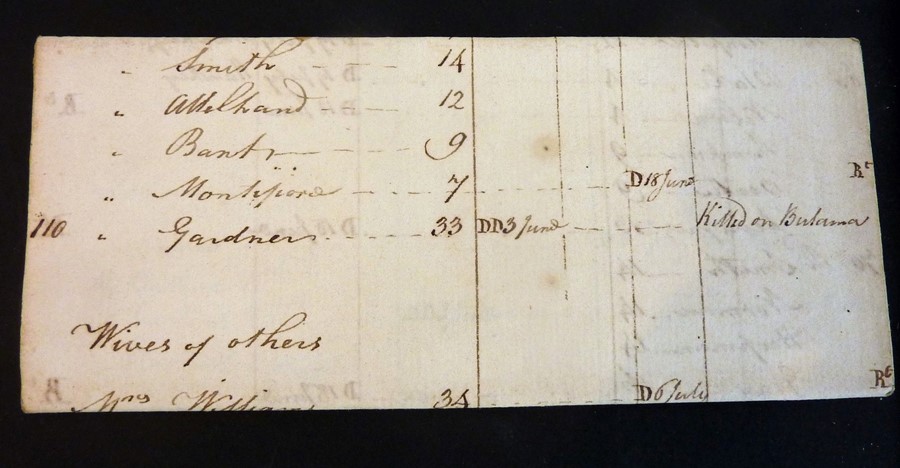 " Smith 14
" Attelhand 12
" Bant 9
" Montefiore 7 D 18 June Rt
110 " Gardner 33 DD 3 June Killed on Bulama
Wives of others
Mrs Williams 34 D 6 July Rt